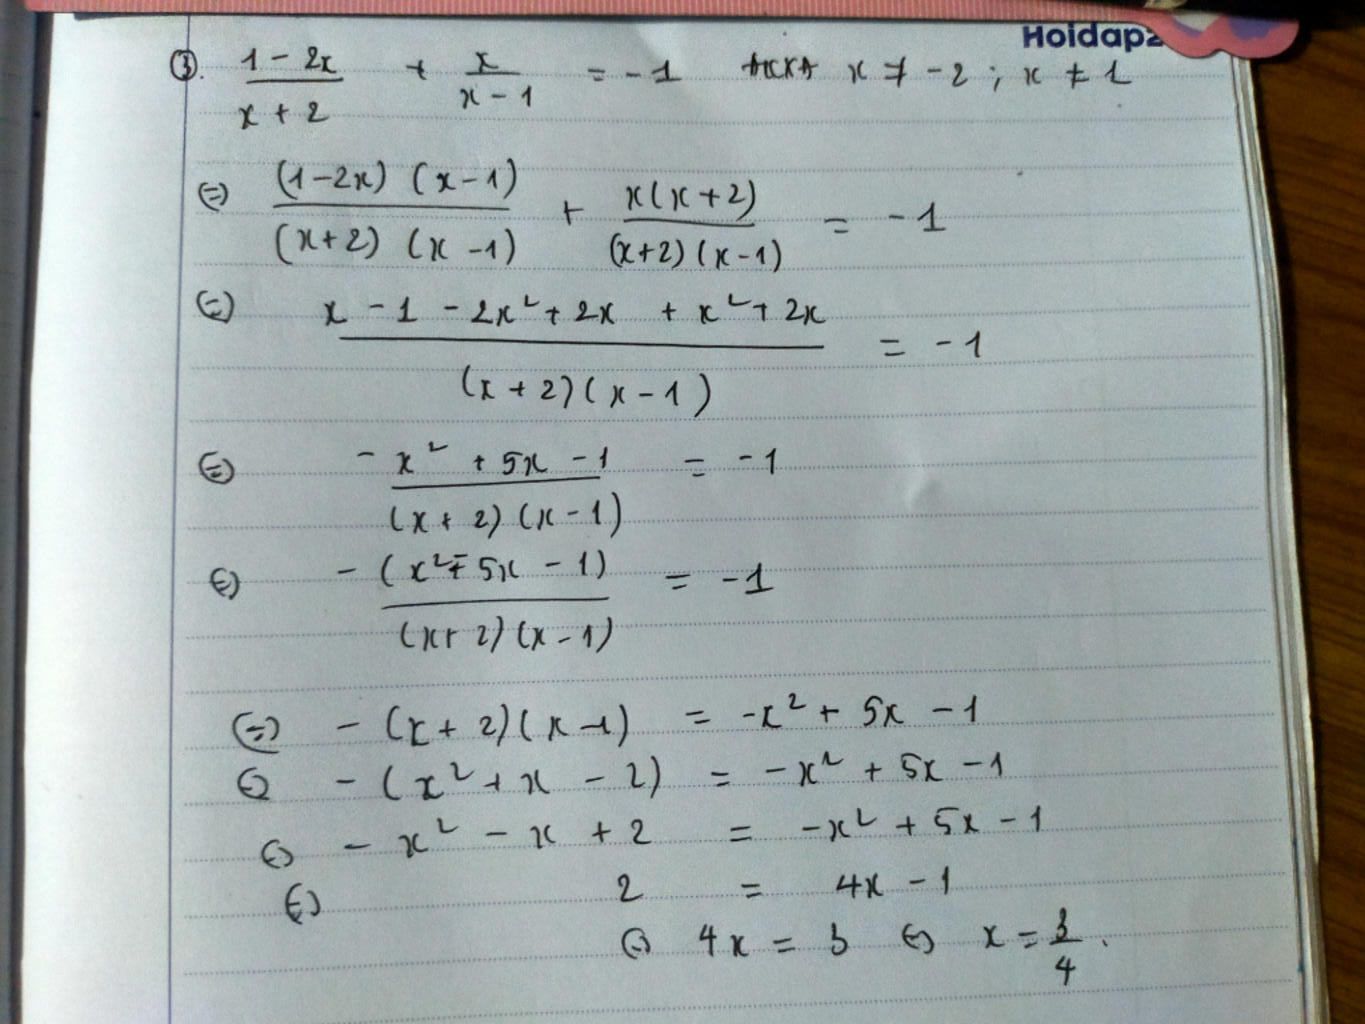 Hoidap2
③. (1 - 2x)/(x + 2) + x/(x - 1) = -1 ĐKXĐ x ≠ -2 ; x ≠ 1
⇔ ((1-2x) (x-1))/((x+2) (x-1)) + (x(x+2))/((x+2)(x-1)) = -1
⇔ (x - 1 - 2x² + 2x + x² + 2x)/((x+2)(x-1)) = -1
⇔ (-x² + 5x - 1)/((x+2)(x-1)) = -1
⇔ (-(x² 5x - 1))/((x+2)(x-1)) = -1
⇔ -(x+2)(x-1) = -x² + 5x - 1
⇔ -(x² + x - 2) = -x² + 5x - 1
⇔ -x² - x + 2 = -x² + 5x - 1
⇔ 2 = 4x - 1
⇔ 4x = 3 ⇔ x = 3/4 .